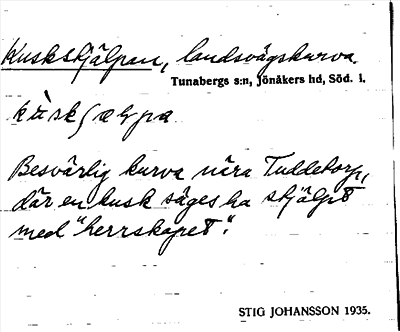 Kuskstjälpan, landsvägskurva.
Tunabergs s:n, Jönåkers hd, Söd. l.
Besvärlig kurva nära Tuddetorp,
där en kusk säges ha stjälpt
med "herrskapet".
STIG JOHANSSON 1935.